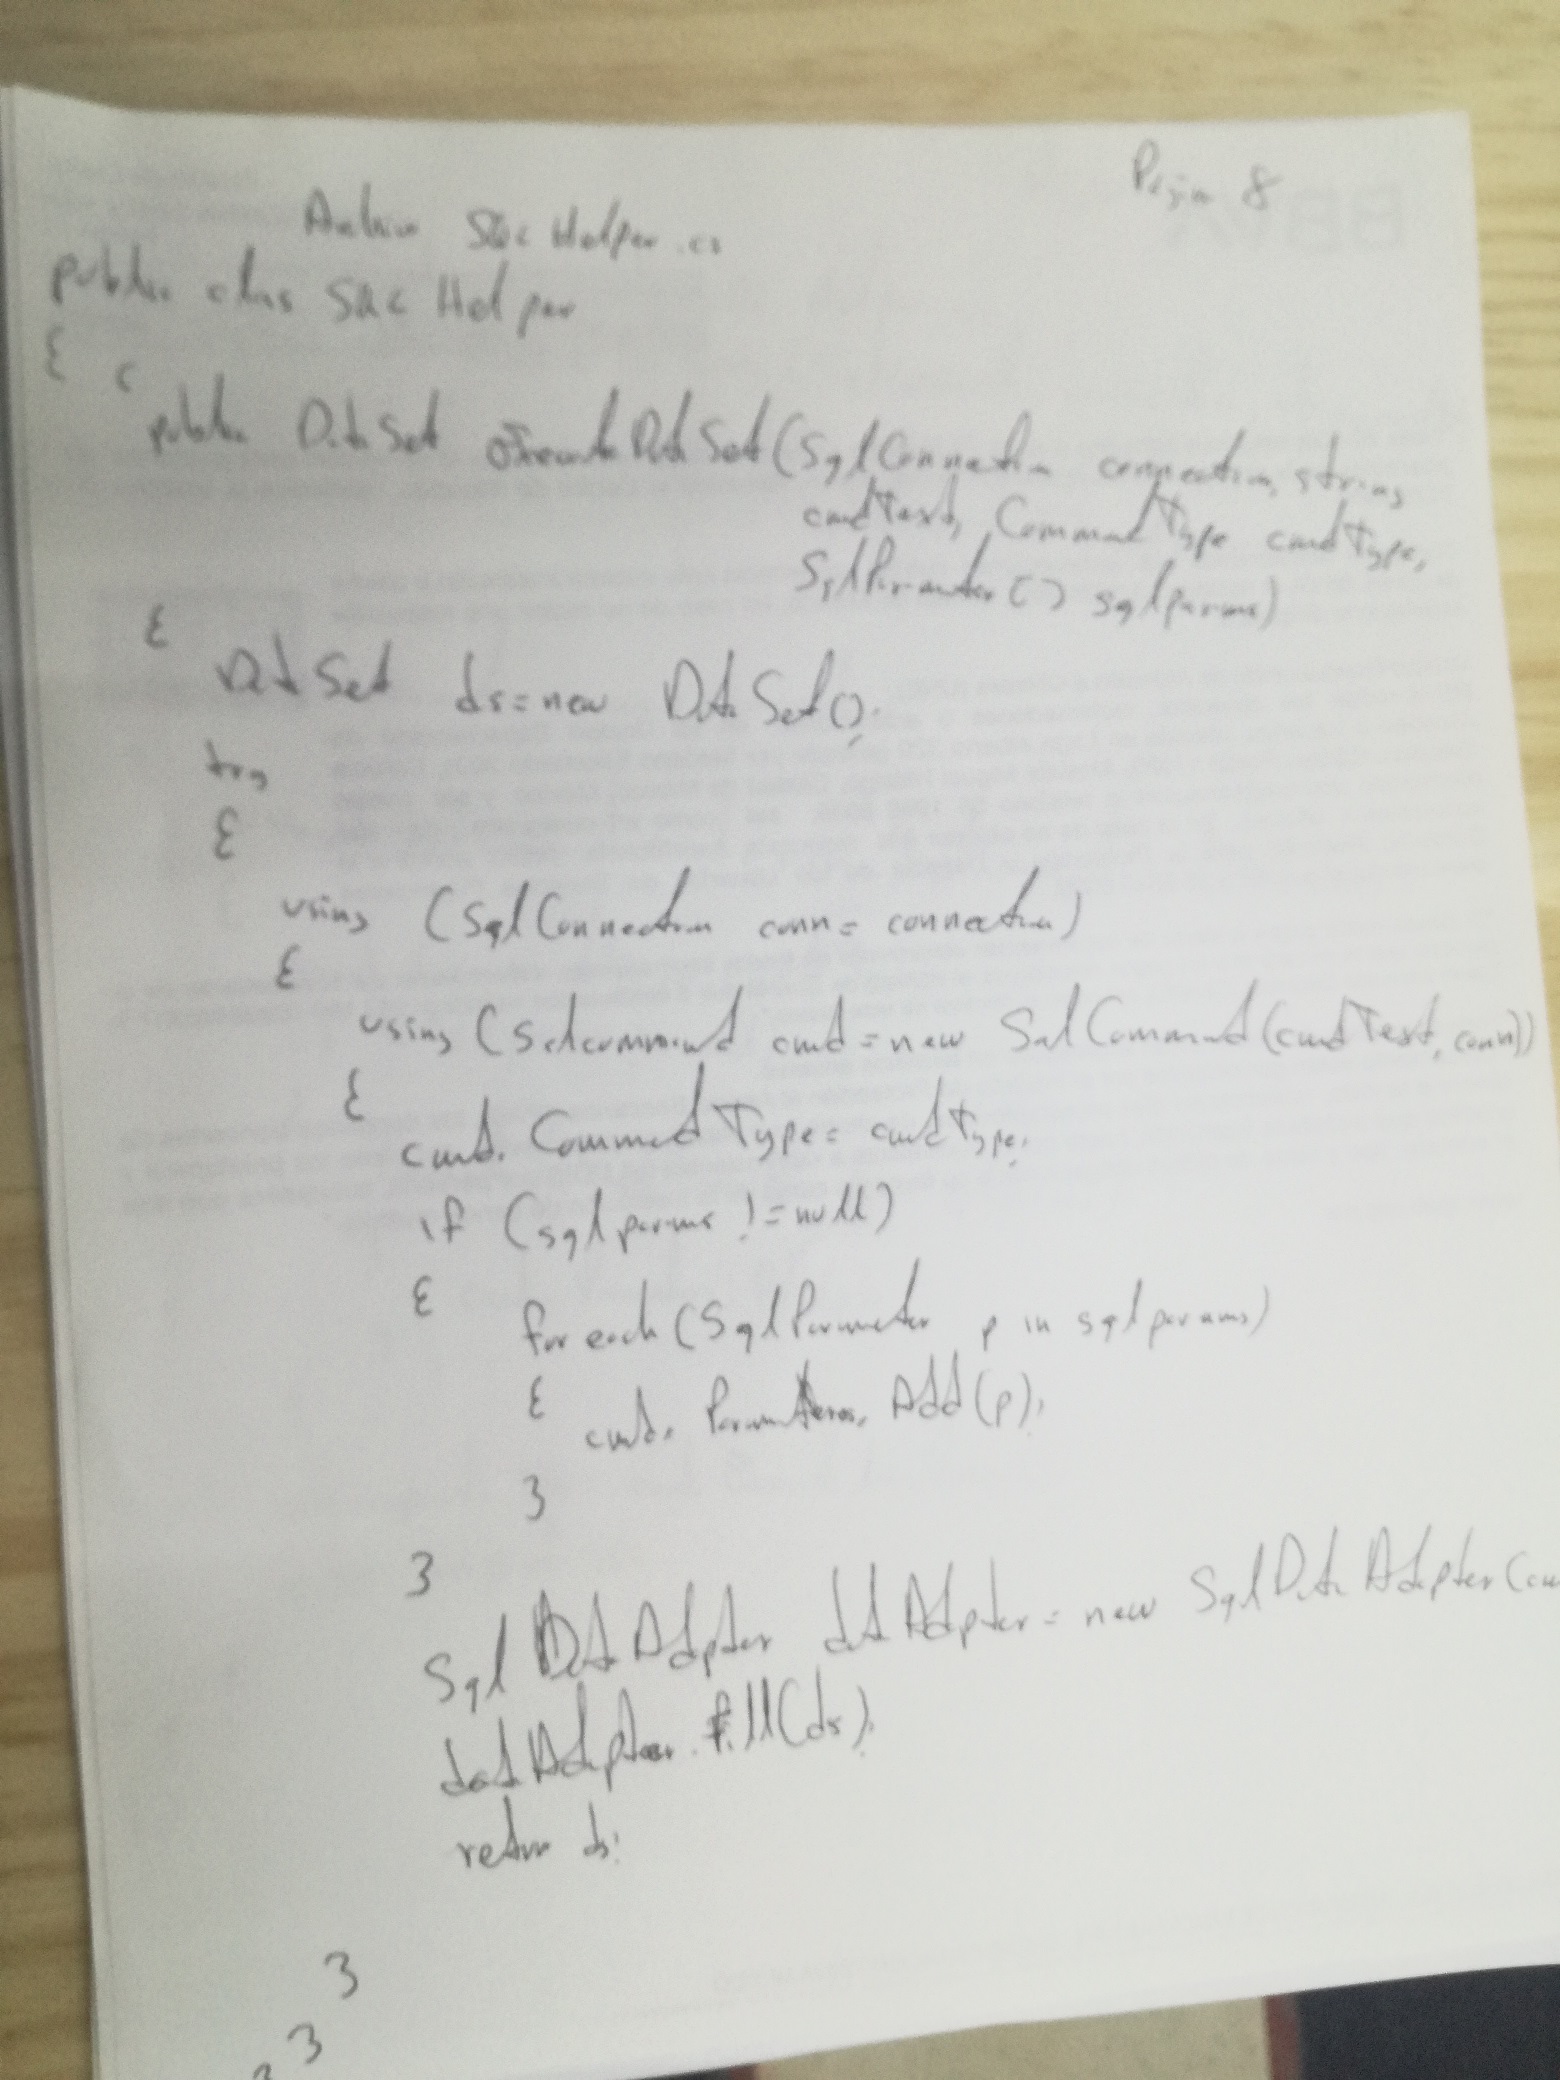 Pagina 8
Archivo SQL Helper.cs
public class SQL Helper
{
public DataSet ExecuteDataSet(SqlConnection connection, string
cmdText, CommandType cmdType,
SqlParameter[] sqlparams)
{
DataSet ds=new DataSet();
try
{
using (SqlConnection conn= connection)
{
using (Sqlcommand cmd=new SqlCommand(cmdText, conn))
{
cmd.CommandType= cmdType;
if (sqlparams != null)
{
foreach (SqlParameter p in sqlparams)
{
cmd.Parameters.Add(p);
}
}
SqlDataAdapter dataAdapter= new SqlDataAdapter(cm
dataAdapter.fill(ds);
return ds;
}
}
}